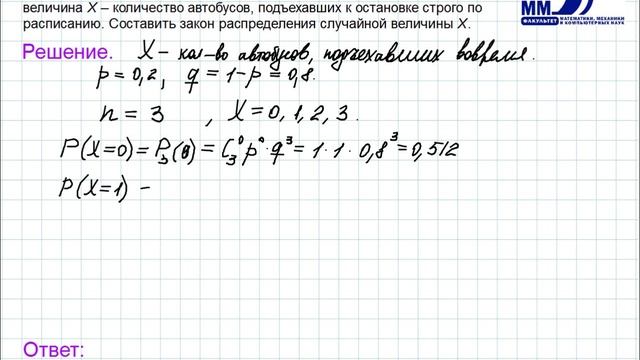 величина X – количество автобусов, подъехавших к остановке строго по
расписанию. Составить закон распределения случайной величины X.
ММ
ФАКУЛЬТЕТ
МАТЕМАТИКИ, МЕХАНИКИ
И КОМПЬЮТЕРНЫХ НАУК
Решение. X – кол-во автобусов, подъехавших вовремя.
p = 0,2, q = 1-p = 0,8.
n = 3 , X = 0, 1, 2, 3.
P(X=0) = P₃(0) = C₃⁰ p⁰·q³ = 1·1·0,8³ = 0,512
P(X=1) –
Ответ: